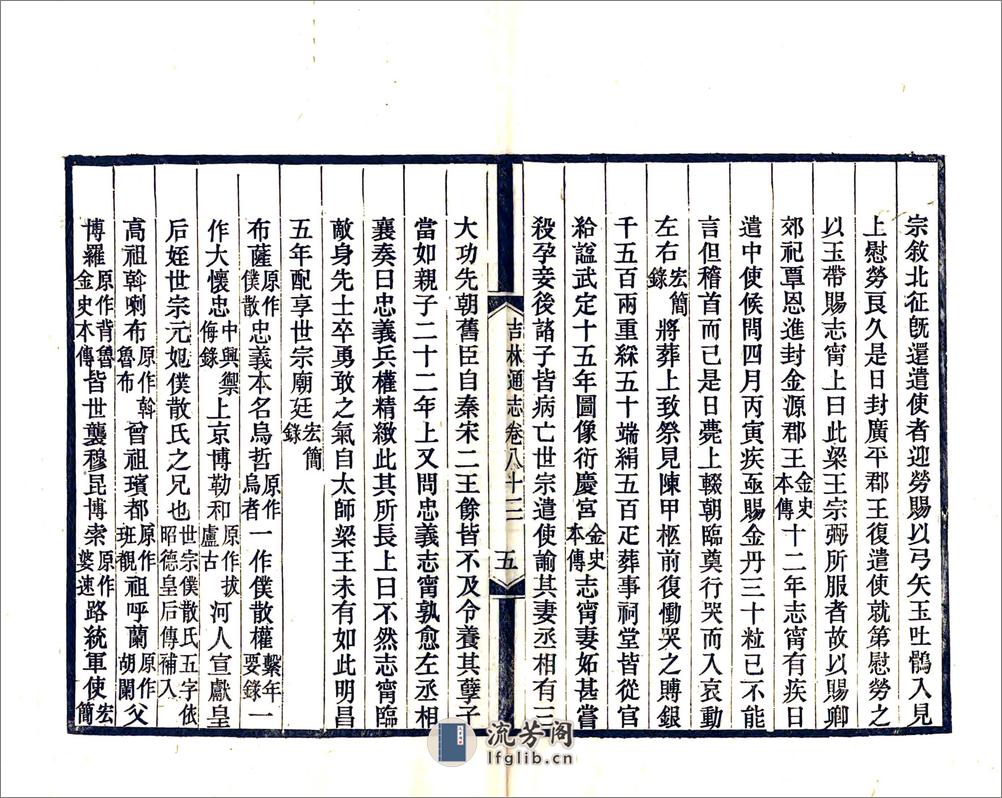 宗敘北征既還遣使者迎勞賜以弓矢玉吐鶻入見
上慰勞良久是日封廣平郡王復遣使就第慰勞之
以玉帶賜志寗上曰此梁王宗弼所服者故以賜卿
郊祀覃恩進封金源郡王金史本傳十二年志寗有疾日
遣中使候問四月丙寅疾亟賜金丹三十粒已不能
言但稽首而已是日薨上輟朝臨奠行哭而入哀動
左右宏簡錄將葬上致祭見陳甲柩前復慟哭之賻銀
千五百兩重綵五十端絹五百疋葬事祠堂皆從官
給諡武定十五年圖像衍慶宮金史本傳志寗妻妬甚嘗
殺孕妾後諸子皆病亡世宗遣使諭其妻丞相有三
吉林通志卷八十三
五
大功先朝舊臣自秦宋二王餘皆不及令養其孽子
當如親子二十二年上又問忠義志寗孰愈左丞相
襄奏曰忠義兵權精緻此其所長上曰不然志寗臨
敵身先士卒勇敢之氣自太師梁王未有如此明昌
五年配享世宗廟廷宏簡錄
布薩原作僕散忠義本名烏哲原作烏者一作僕散權繫年要錄一
作大懷忠中興禦侮錄上京博勒和原作拔盧古河人宣獻皇
后姪世宗元妃僕散氏之兄也世宗僕散氏五字依昭德皇后傳補入
高祖斡喇布原作斡魯布曾祖璸都原作班覩祖呼蘭原作胡闌父
博羅原作背魯金史本傳皆世襲穆昆博索原作婆速路統軍使宏簡
流芳阁
lfglib.cn